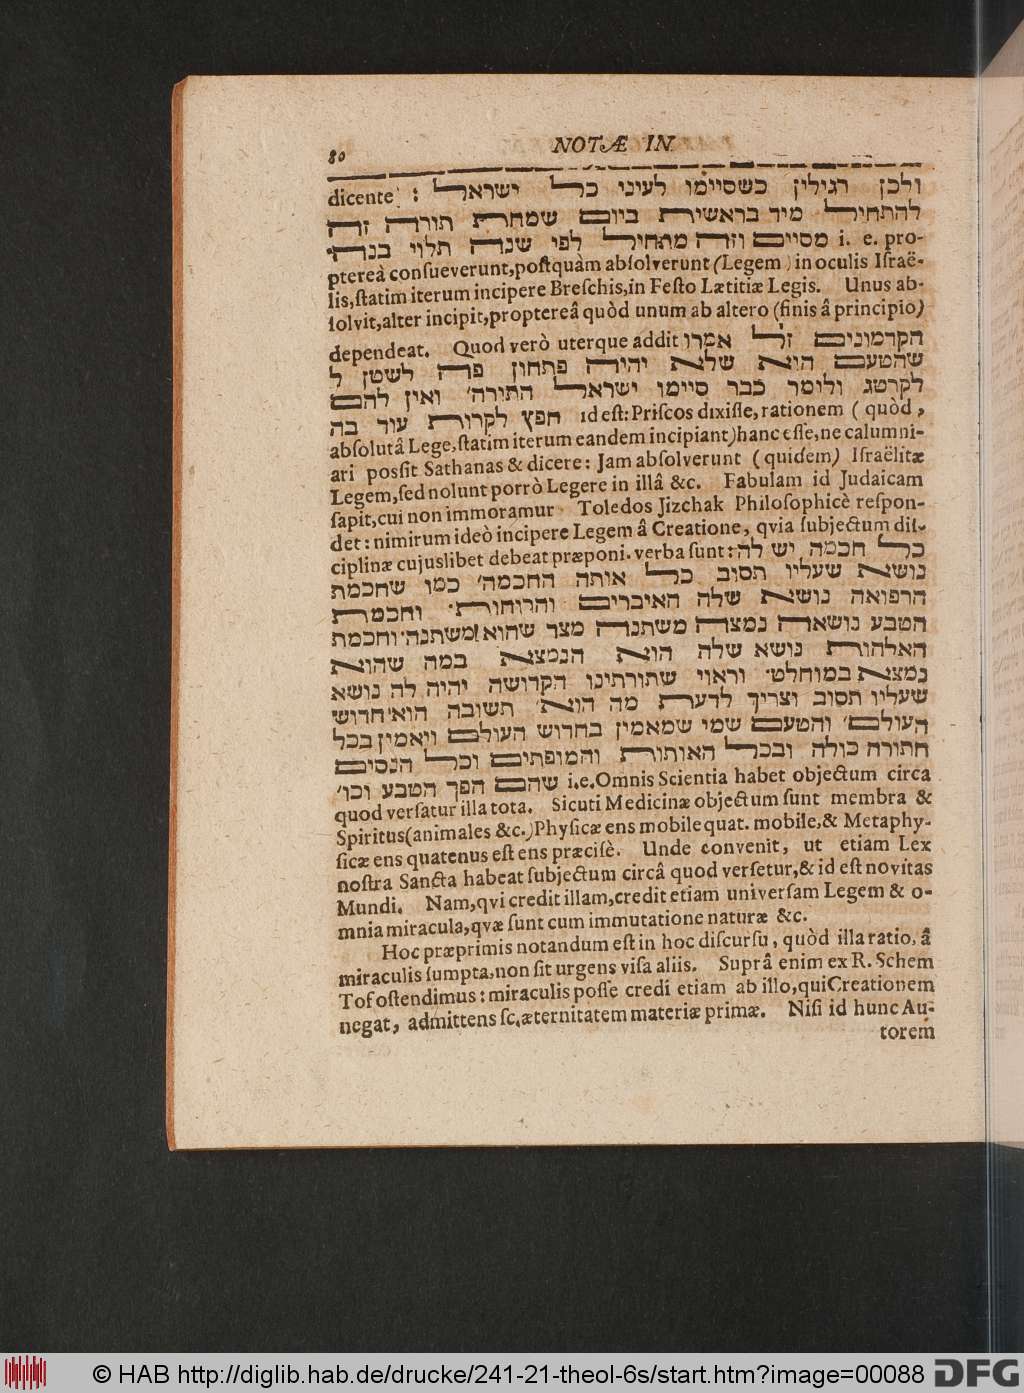 80 NOTÆ IN
dicente: ולכן רגילין כשסיימו לעיני כל ישראל
להתחיל מיד בראשית ביום שמחת תורה זה
מסיים וזה מתחיל לפי שנה תלוי בנה. i. e. pro-
ptereà conſueverunt, poſtquàm abſolverunt (Legem) in oculis Iſraë-
lis, ſtatim iterum incipere Breſchis, in Feſto Lætitiæ Legis. Unus ab-
ſolvit, alter incipit, proptereâ quòd unum ab altero (finis â principio)
dependeat. Quod verò uterque addit הקדמונים ז״ל אמרו
שהטעם הוא שלא יהיה פתחון פה לשטן ל
לקרטג ולומר כבר סיימו ישראל התורה׳ ואין להם
חפץ לקרות עוד בה id eſt: Priſcos dixiſſe, rationem (quòd,
abſolutâ Lege, ſtatim iterum eandem incipiant) hanc eſſe, ne calumni-
ari poſſit Sathanas & dicere: Jam abſolverunt (quidem) Iſraëlitæ
Legem, ſed nolunt porrò Legere in illâ &c. Fabulam id Judaicam
ſapit, cui non immoramur Toledos Jizchak Philoſophicè reſpon-
det: nimirum ideò incipere Legem â Creatione, qvia ſubjectum diſ-
ciplinæ cujuslibet debeat præponi. verba ſunt: כל חכמה יש לה
נושא שעליו תסוב כל אותה החכמה׳ כמו שחכמת
הרפואה נושא שלה האיברים והרוחות. וחכמת
הטבע נושאה נמצה משתנה מצד שהוא משתנה. וחכמת
האלהות נושא שלה הוא הנמצא במה שהוא
נמצא במוחלט. וראוי שתורתינו הקדושה יהיה לה נושא
שעליו תסוב וצריך לדעת מה הוא׳ תשובה הוא חדוש
העולם׳ והטעם שמי שמאמין בחדוש העולם ויאמין בכל
חתורה כולה ובכל האותות והמופתים וכל הנסים
שהם הפך הטבע וכו׳ i. e. Omnis Scientia habet objectum circa
quod verſatur illa tota. Sicuti Medicinæ objectum ſunt membra &
Spiritus (animales &c.) Phyſicæ ens mobile quat. mobile, & Metaphy-
ſicæ ens quatenus eſt ens præciſè. Unde convenit, ut etiam Lex
noſtra Sancta habeat ſubjectum circâ quod verſetur, & id eſt novitas
Mundi. Nam, qvi credit illam, credit etiam univerſam Legem & o-
mnia miracula, qvæ ſunt cum immutatione naturæ &c.
Hoc præprimis notandum eſt in hoc diſcurſu, quòd illa ratio, â
miraculis ſumpta, non ſit urgens viſa aliis. Suprâ enim ex R. Schem
Tof oſtendimus: miraculis poſſe credi etiam ab illo, qui Creationem
negat, admittens ſc. æternitatem materiæ primæ. Niſi id hunc Au-
torem
© HAB http://diglib.hab.de/drucke/241-21-theol-6s/start.htm?image=00088 DFG